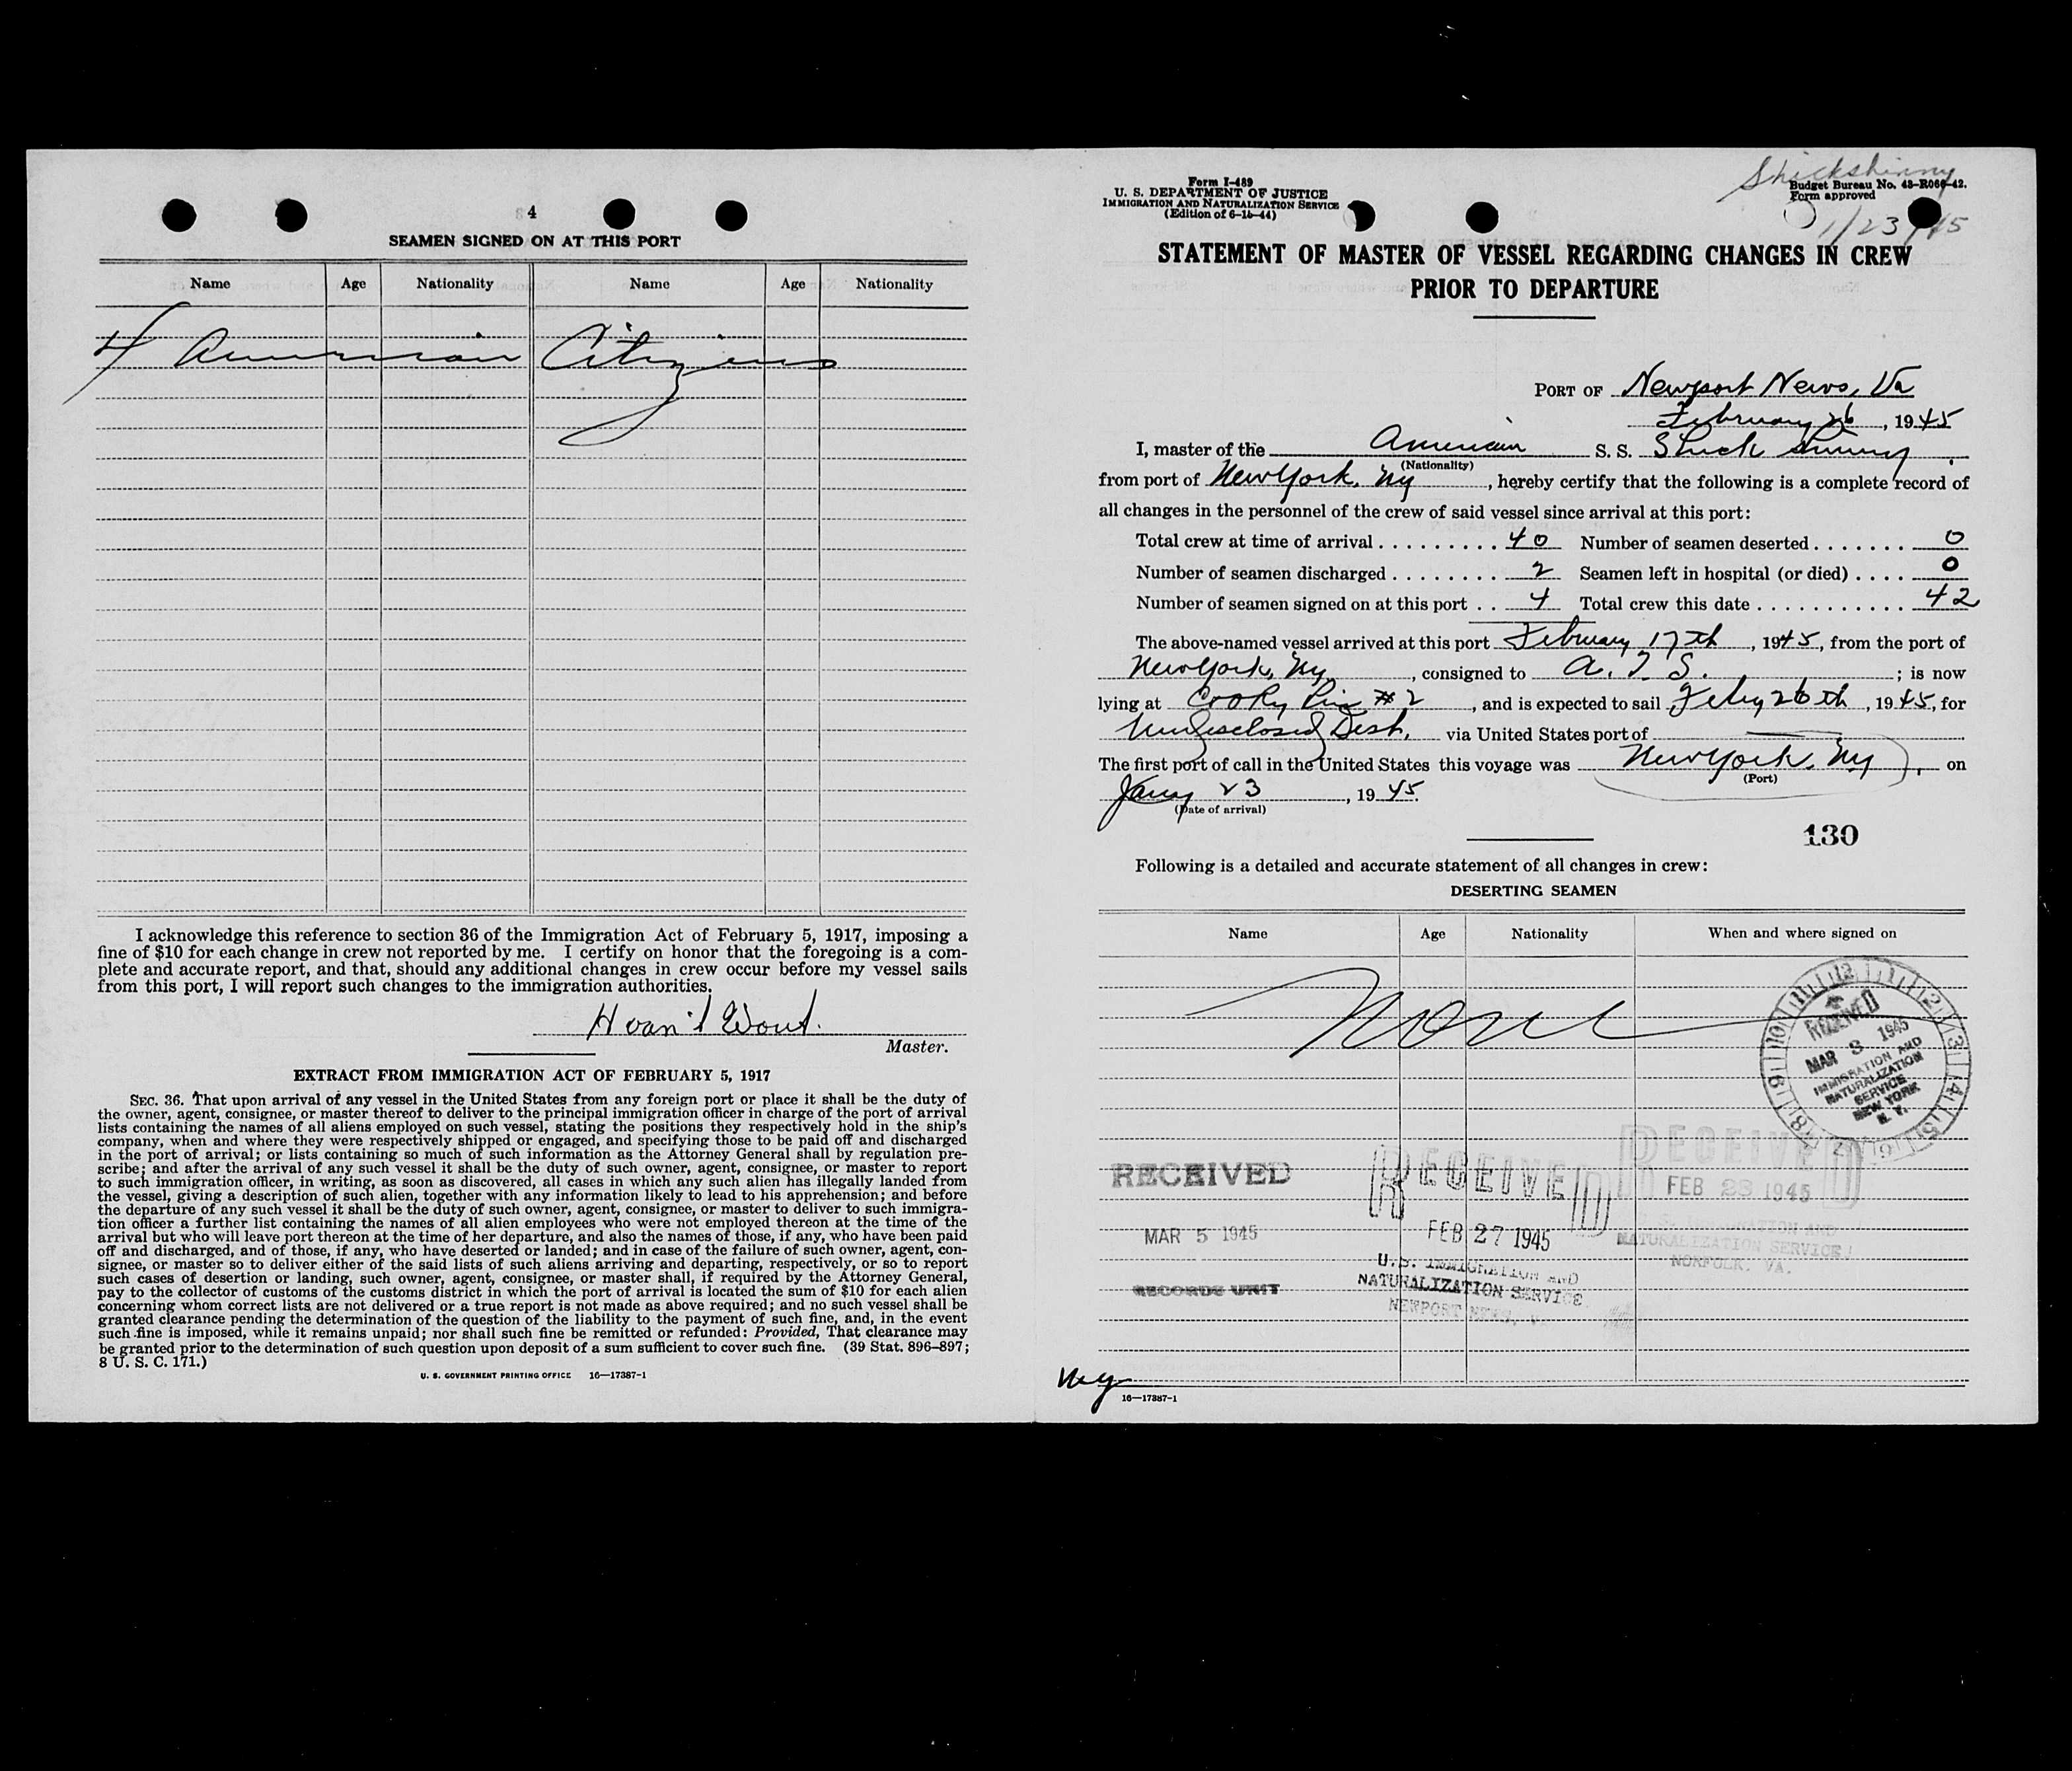 4
SEAMEN SIGNED ON AT THIS PORT
Name Age Nationality Name Age Nationality
4 American Citizens
I acknowledge this reference to section 36 of the Immigration Act of February 5, 1917, imposing a
fine of $10 for each change in crew not reported by me. I certify on honor that the foregoing is a com-
plete and accurate report, and that, should any additional changes in crew occur before my vessel sails
from this port, I will report such changes to the immigration authorities.
H van't Wout.
Master.
EXTRACT FROM IMMIGRATION ACT OF FEBRUARY 5, 1917
SEC. 36. That upon arrival of any vessel in the United States from any foreign port or place it shall be the duty of
the owner, agent, consignee, or master thereof to deliver to the principal immigration officer in charge of the port of arrival
lists containing the names of all aliens employed on such vessel, stating the positions they respectively hold in the ship's
company, when and where they were respectively shipped or engaged, and specifying those to be paid off and discharged
in the port of arrival; or lists containing so much of such information as the Attorney General shall by regulation pre-
scribe; and after the arrival of any such vessel it shall be the duty of such owner, agent, consignee, or master to report
to such immigration officer, in writing, as soon as discovered, all cases in which any such alien has illegally landed from
the vessel, giving a description of such alien, together with any information likely to lead to his apprehension; and before
the departure of any such vessel it shall be the duty of such owner, agent, consignee, or master to deliver to such immigra-
tion officer a further list containing the names of all alien employees who were not employed thereon at the time of the
arrival but who will leave port thereon at the time of her departure, and also the names of those, if any, who have been paid
off and discharged, and of those, if any, who have deserted or landed; and in case of the failure of such owner, agent, con-
signee, or master so to deliver either of the said lists of such aliens arriving and departing, respectively, or so to report
such cases of desertion or landing, such owner, agent, consignee, or master shall, if required by the Attorney General,
pay to the collector of customs of the customs district in which the port of arrival is located the sum of $10 for each alien
concerning whom correct lists are not delivered or a true report is not made as above required; and no such vessel shall be
granted clearance pending the determination of the question of the liability to the payment of such fine, and, in the event
such fine is imposed, while it remains unpaid; nor shall such fine be remitted or refunded: Provided, That clearance may
be granted prior to the determination of such question upon deposit of a sum sufficient to cover such fine. (39 Stat. 896–897;
8 U. S. C. 171.)
U. S. GOVERNMENT PRINTING OFFICE 16—17387-1
Shickshinny
1/23/45
Form I-489
U. S. DEPARTMENT OF JUSTICE
IMMIGRATION AND NATURALIZATION SERVICE
(Edition of 6-15-44)
Budget Bureau No. 43-R066-42.
Form approved
STATEMENT OF MASTER OF VESSEL REGARDING CHANGES IN CREW
PRIOR TO DEPARTURE
PORT OF Newport News, Va
February 26, 1945
I, master of the American S. S. Shick shinny
(Nationality)
from port of New York, Ny, hereby certify that the following is a complete record of
all changes in the personnel of the crew of said vessel since arrival at this port:
Total crew at time of arrival . . . . . . . . . . 40 Number of seamen deserted . . . . . . . 0
Number of seamen discharged . . . . . . . . 2 Seamen left in hospital (or died) . . . . 0
Number of seamen signed on at this port . . 4 Total crew this date . . . . . . . . . . . 42
The above-named vessel arrived at this port February 17th, 1945, from the port of
New York, Ny, consigned to A. T. S. ; is now
lying at #2, and is expected to sail Feby 26th, 1945, for
Undisclosed Dest. via United States port of
The first port of call in the United States this voyage was New York, Ny, on
(Port)
Jany 23, 1945.
(Date of arrival)
130
Following is a detailed and accurate statement of all changes in crew:
DESERTING SEAMEN
Name Age Nationality When and where signed on
None
RECEIVED
MAR 3 1945
IMMIGRATION AND
NATURALIZATION
SERVICE
NEW YORK
N. Y.
RECEIVED
MAR 5 1945
RECORDS UNIT
RECEIVED
FEB 27 1945
U.S. IMMIGRATION AND
NATURALIZATION SERVICE
NEWPORT NEWS, VA.
RECEIVED
FEB 28 1945
U.S. IMMIGRATION AND
NATURALIZATION SERVICE
NORFOLK, VA.
Ny
16—17387-1